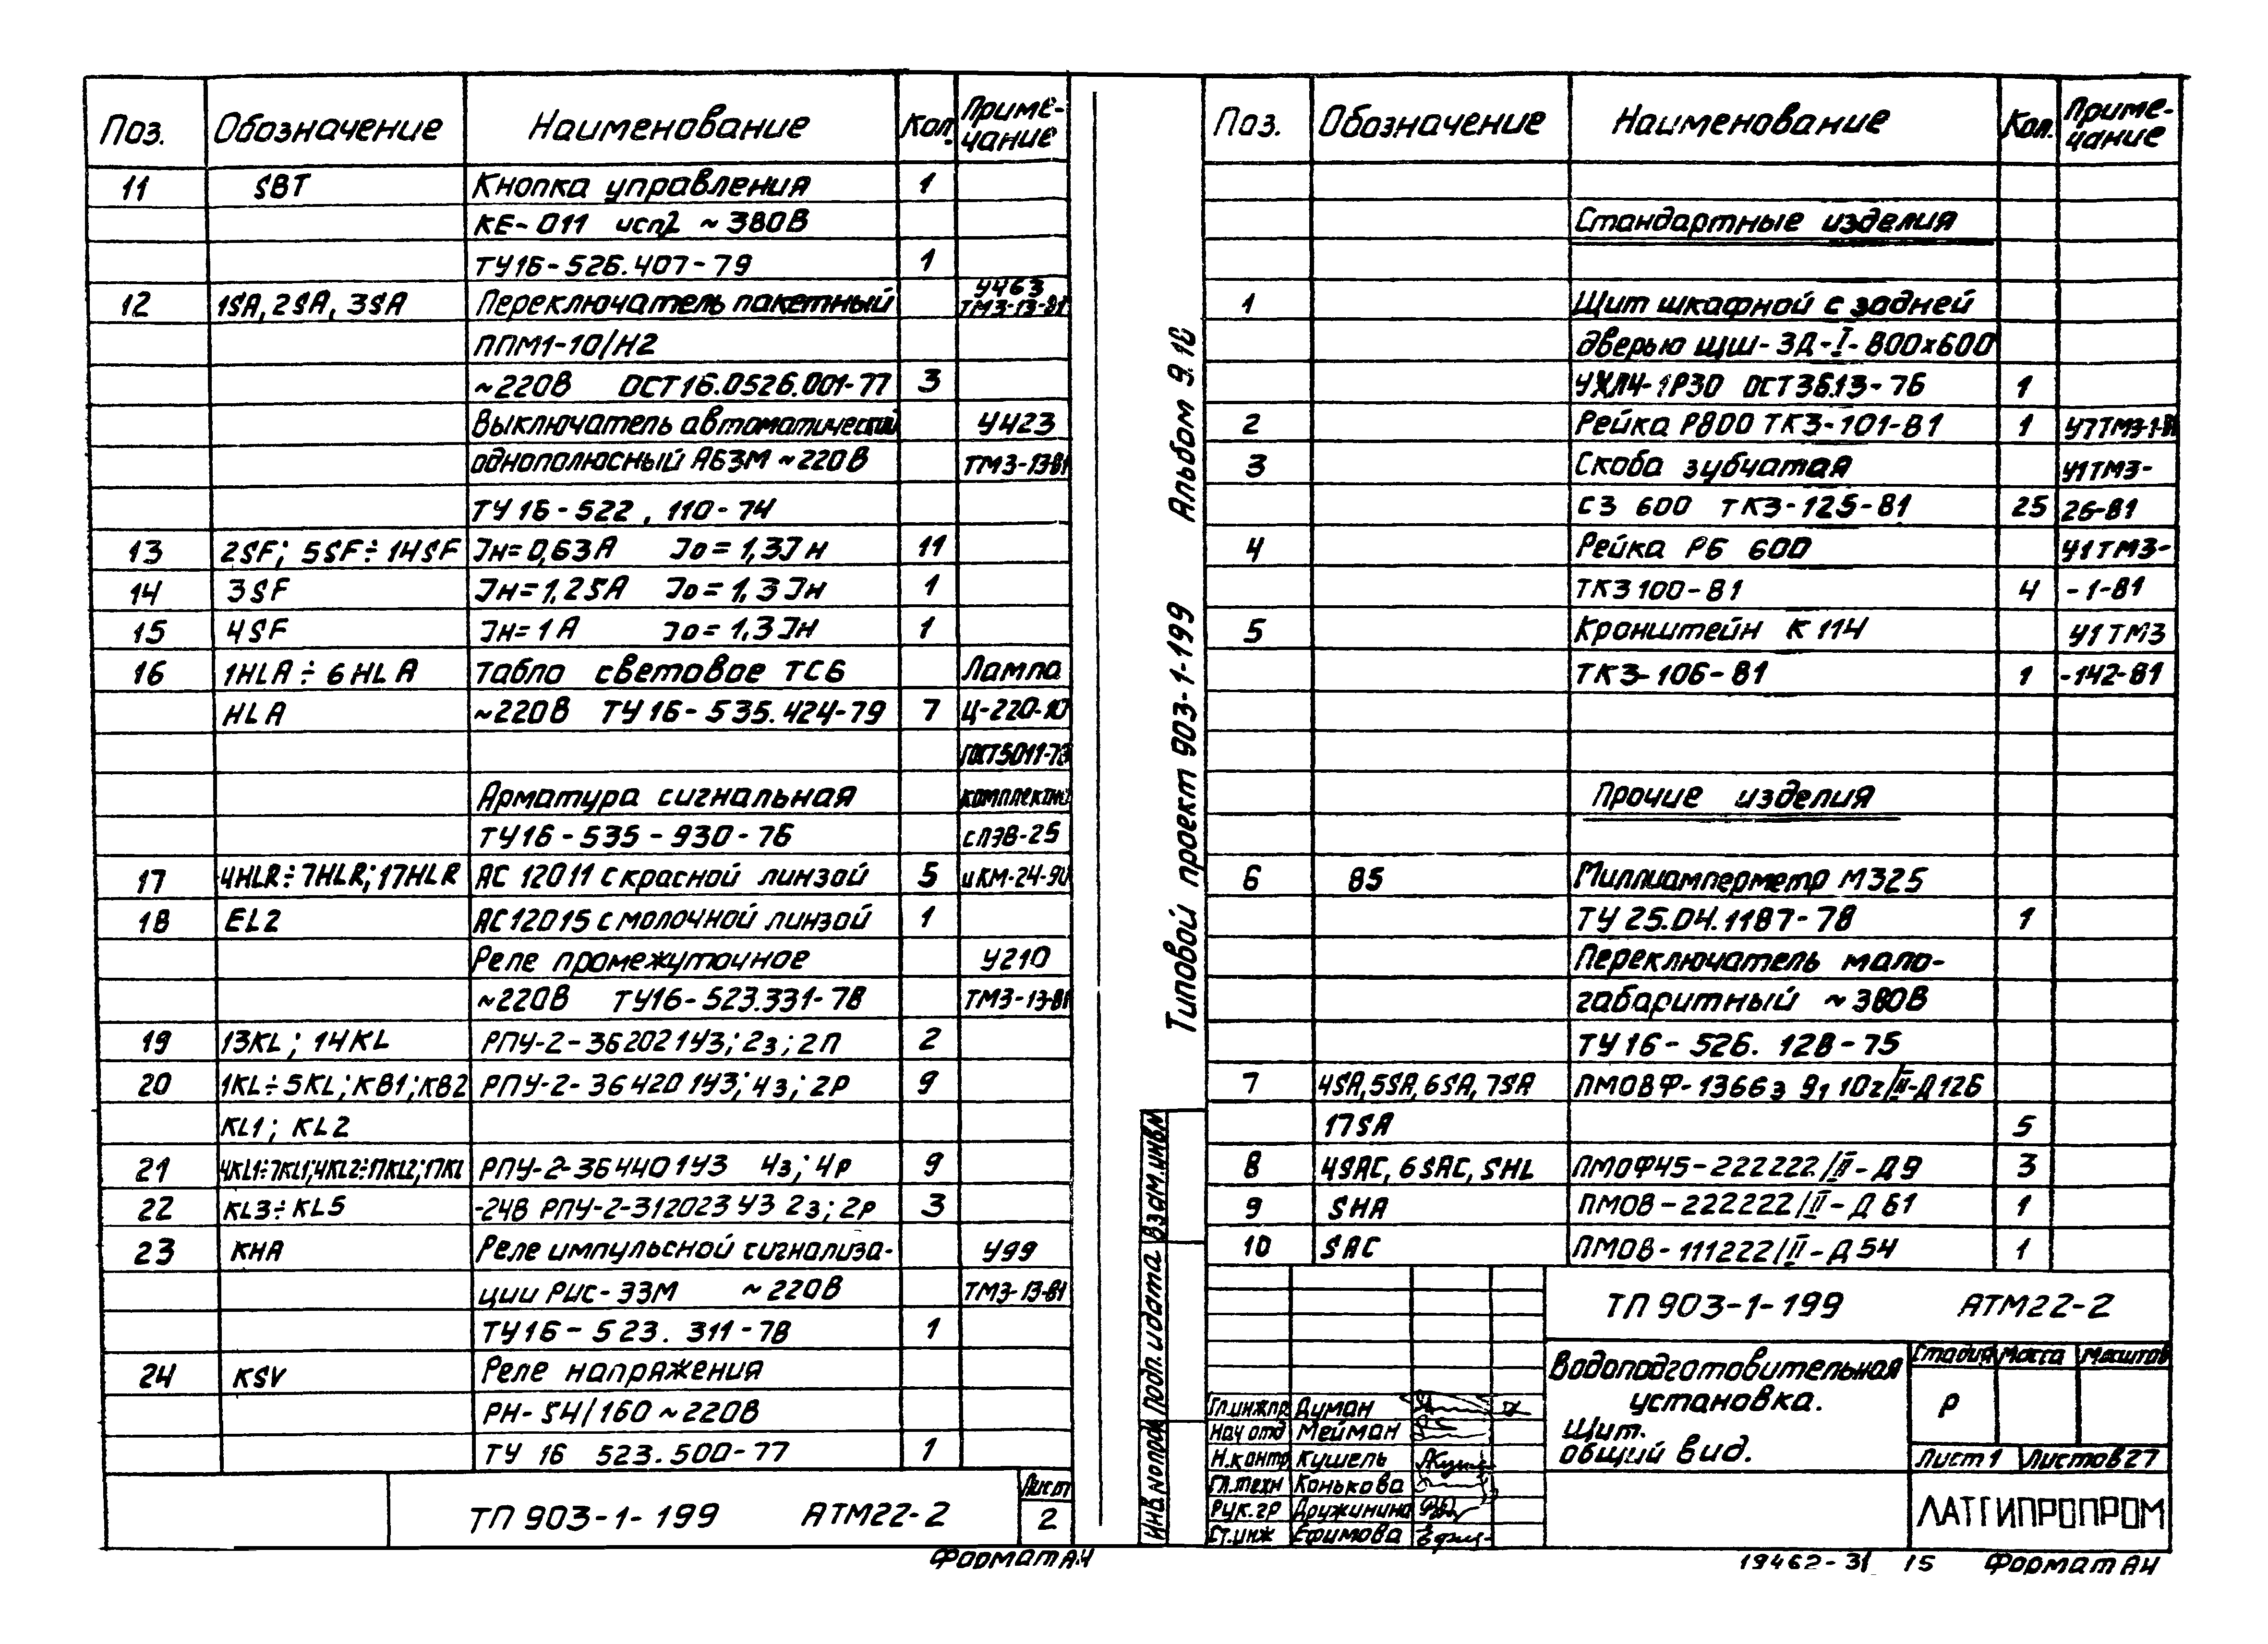 Поз. Обозначение Наименование Кол. Приме-
чание
11 SBT Кнопка управления 1
КЕ-011 исп2 ~380В
ТУ16-526.407-79 1
12 1SA, 2SA, 3SA Переключатель пакетный У463
ТМ3-13-81
ППМ1-10/Н2
~220В ОСТ16.0526.001-77 3
Выключатель автоматический У423
однополюсный А63М ~220В ТМ3-13-81
ТУ16-522.110-74
13 2SF; 5SF÷14SF Jн=0,63А Jо=1,3Jн 11
14 3SF Jн=1,25А Jо=1,3Jн 1
15 4SF Jн=1А Jо=1,3Jн 1
16 1HLA÷6HLA Табло световое ТСБ Лампа
HLA ~220В ТУ16-535.424-79 7 Ц-220-10
ГОСТ5011-73
Арматура сигнальная комплектно
ТУ16-535-930-76 с ПЭВ-25
17 4HLR÷7HLR; 17HLR АС 12011 с красной линзой 5 и КМ-24-90
18 EL2 АС12015 с молочной линзой 1
Реле промежуточное У210
~220В ТУ16-523.331-78 ТМ3-13-81
19 13KL; 14KL РПУ-2-362021У3; 2з; 2П 2
20 1KL÷5KL; КВ1; КВ2 РПУ-2-364201У3; 4з; 2Р 9
KL1; KL2
21 4KL1÷7KL1; 4KL2÷17KL2; 17KL РПУ-2-364401У3 4з; 4р 9
22 KL3÷KL5 -24В РПУ-2-312023У3 2з; 2р 3
23 КНА Реле импульсной сигнализа- У99
ции РИС-Э3М ~220В ТМ3-13-81
ТУ16-523.311-78 1
24 KSV Реле напряжения
РН-54/160 ~220В
ТУ 16 523.500-77 1
ТП 903-1-199 АТМ22-2
Лист
2
Формат А4
Типовой проект 903-1-199 Альбом 9.10
Поз. Обозначение Наименование Кол. Приме-
чание
Стандартные изделия
1 Щит шкафной с задней
дверью ЩШ-ЗД-I-800х600
УХЛ4-1Р30 ОСТ36.13-76 1
2 Рейка Р800 ТК3-101-81 1 У7ТМ3-1-81
3 Скоба зубчатая У1ТМ3-
С3 600 ТК3-125-81 25 26-81
4 Рейка РБ 600 У1ТМ3-
ТК3100-81 4 -1-81
5 Кронштейн К 114 У1ТМ3
ТК3-106-81 1 -142-81
Прочие изделия
6 85 Миллиамперметр М325
ТУ 25.04.1187-78 1
Переключатель мало-
габаритный ~380В
ТУ16-526.128-75
7 4SA, 5SA, 6SA, 7SA ПМОВФ-1366з 9, 10г/II-Д126
17SA 5
8 4SAC, 6SAC, SHL ПМОФ45-222222/II-Д9 3
9 SHA ПМОВ-222222/II-Д61 1
10 SAC ПМОВ-111222/II-Д54 1
ТП 903-1-199 АТМ22-2
Водоподготовительная
установка.
Щит.
общий вид.
Стадия Масса Масштаб
Р
Лист 1 Листов 27
ЛАТГИПРОПРОМ
Гл.инж.пр Думан
Нач отд Мейман
Н.контр Кушель
Гл.техн Конькова
Рук.гр Дружинина
Ст.инж Ефимова
Инв.№подл Подп. и дата Взам.инв№
19462-31 15 Формат А4